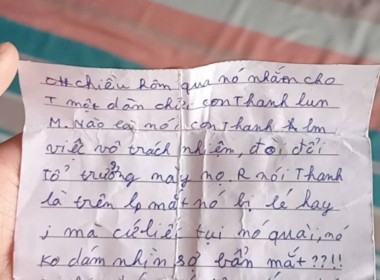 chiều hôm qua nó nhắn cho
T một dàn chửi con Thanh lun
M. Nào cg nói con Thanh k lm
việt vô trách nhiệm, đòi đổi
tổ trưởng này nọ. R nói Thanh
là trên lp mắt nó bị lé hay
j mà cứ liết tụi nó quài, nó
ko dám nhìn sợ bẩn mắt??!!